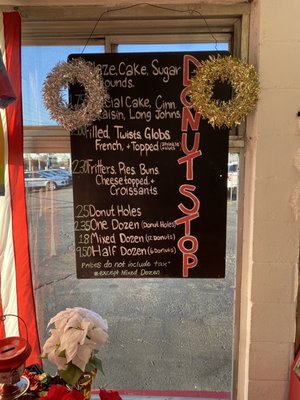 Glaze, Cake, Sugar
Rounds.
Special Cake, Cinn,
Raisin, Long Johns
Filled, Twists, Globs
French, + Topped
2.30 Fritters, Pies, Buns
Cheese topped, +
Croissants
.25 Donut Holes
2.35 One Dozen (Donut Holes)
18 Mixed Dozen (12 Donuts)
9.50 Half Dozen (6 Donuts)
Prices do not include tax
*except Mixed Dozen
DONUT STOP